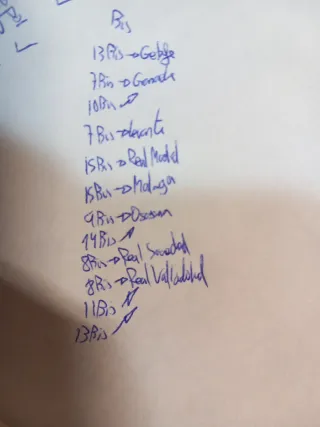 Bis
13Bis → Getafe
7Bis → Granada
10Bis ↗
7Bis → Levante
15Bis → Real Madrid
15Bis → Malaga
9Bis → Osasuna
14Bis ↗
8Bis → Real Sociedad
8Bis → Real Valladolid
11Bis ↗
13Bis ↗